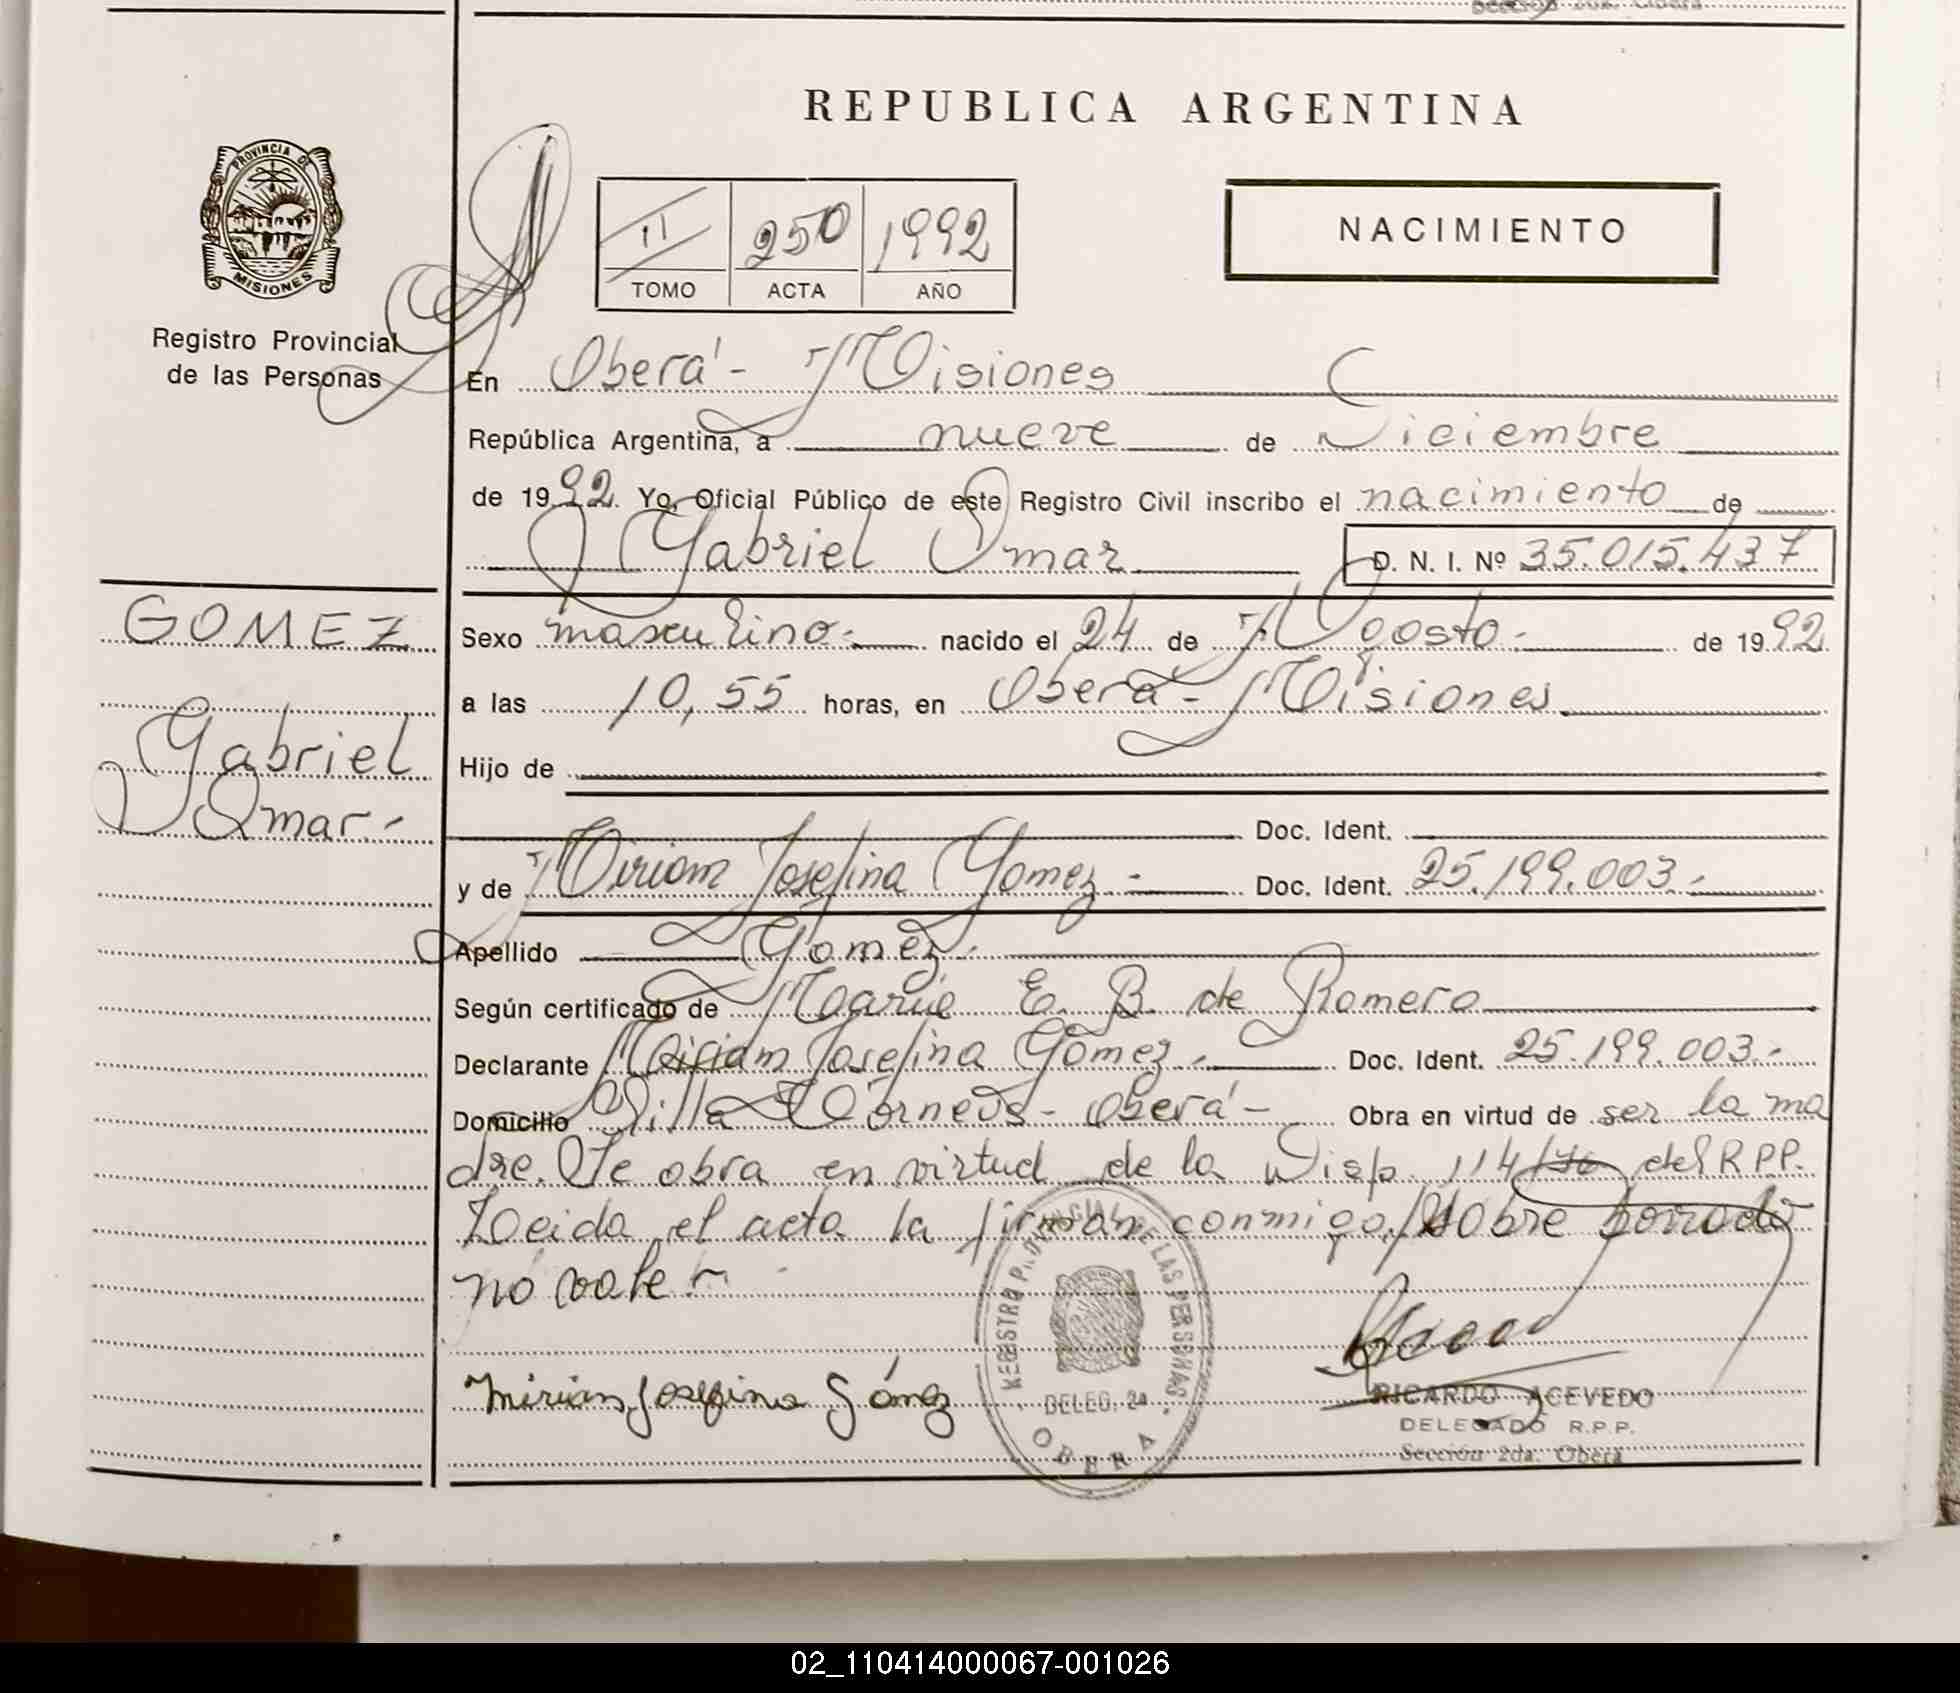 REPUBLICA ARGENTINA
PROVINCIA DE
MISIONES
Registro Provincial
de las Personas
II 250 1992
TOMO ACTA AÑO
NACIMIENTO
En Oberá - Misiones
República Argentina, a nueve de Diciembre
de 1992. Yo, Oficial Público de este Registro Civil inscribo el nacimiento de
Gabriel Omar D. N. I. Nº 35.015.437
GOMEZ
Gabriel
Omar.-
Sexo masculino.- nacido el 24 de Agosto.- de 1992
a las 10,55 horas, en Oberá - Misiones.
Hijo de
Doc. Ident.
y de Miriam Josefina Gomez.- Doc. Ident. 25.199.003.-
Apellido Gomez.-
Según certificado de Maria E. B. de Romero
Declarante Miriam Josefina Gomez.- Doc. Ident. 25.199.003.-
Domicilio Villa - Oberá - Obra en virtud de ser la ma
dre. Se obra en virtud de la Disp. 114/ del RPP.
Leida el acta la firman conmigo. Sobre borrado
no vale.-
Mirian Josefina Gómez
REGISTRO PROVINCIAL DE LAS PERSONAS
DELEG. 2a
OBERA
RICARDO ACEVEDO
DELEGADO R.P.P.
Sección 2da. Oberá
02_110414000067-001026